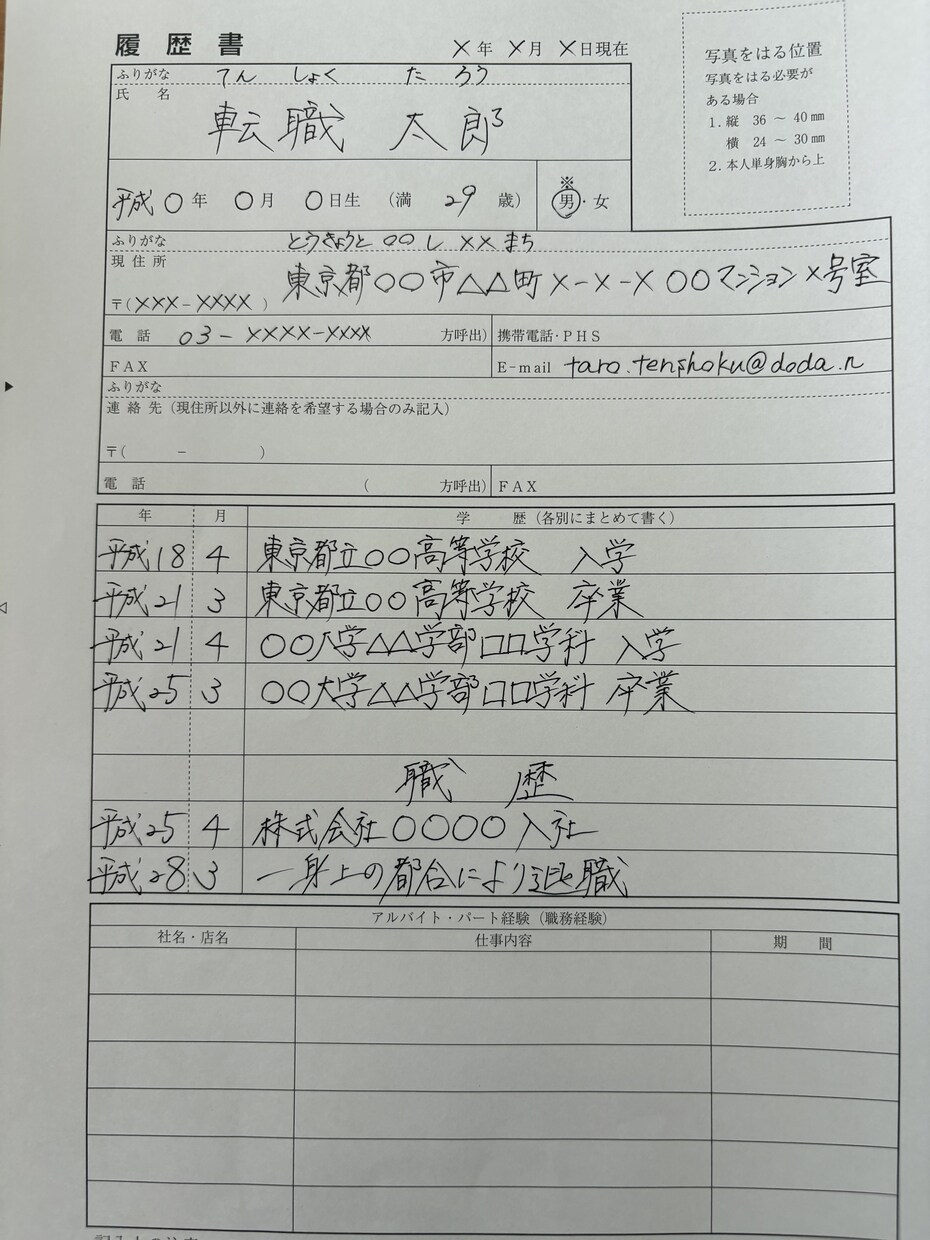 履歴書
×年 ×月 ×日現在
写真をはる位置
写真をはる必要が
ある場合
1.縦 36 ～ 40㎜
横 24 ～ 30㎜
2.本人単身胸から上
ふりがな てん しょく た ろう
氏 名
転職 太郎
平成○年 ○月 ○日生 (満 29 歳) ※ 男・女
ふりがな とうきょうと ○○し ××まち
現住所
東京都○○市△△町×-×-× ○○マンション×号室
〒(×××-××××)
電 話 03-××××-×××× 方呼出) 携帯電話・PHS
FAX E-mail taro.tenshoku@doda.n
ふりがな
連絡先(現住所以外に連絡を希望する場合のみ記入)
〒( － )
電 話 ( 方呼出) FAX
年 月 学 歴(各別にまとめて書く)
平成18 4 東京都立○○高等学校 入学
平成21 3 東京都立○○高等学校 卒業
平成21 4 ○○大学△△学部□□学科 入学
平成25 3 ○○大学△△学部□□学科 卒業
職 歴
平成25 4 株式会社○○○○入社
平成28 3 一身上の都合により退職
アルバイト・パート経験(職務経験)
社名・店名 仕事内容 期 間